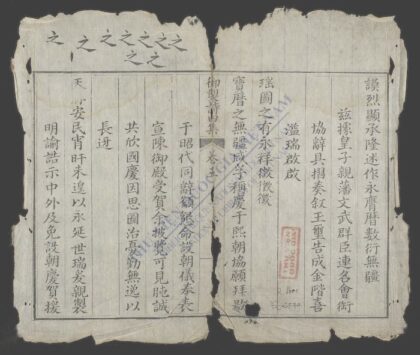 謨烈顯承隆述作永膺曆數衍無疆
茲據皇子親藩文武群臣連名會銜
協辭具摺奏叙玉璽告成金階喜
溢瑞啟啟
瑤圖之有永祥徵徵徵
寶曆之無疆咸孚稱慶于熙朝協願拜颺
御製詩 集 卷
于昭代同辭籲懇命設朝儀奉表
宣陳御殿受賀余披覽可見 誠
共欣國慶因思圖治憂勤無逸以
長迓
天 安民宵旰未遑以永延世瑞爰親製
明諭誥示中外及免設朝慶賀援
之之之之之之之
之之